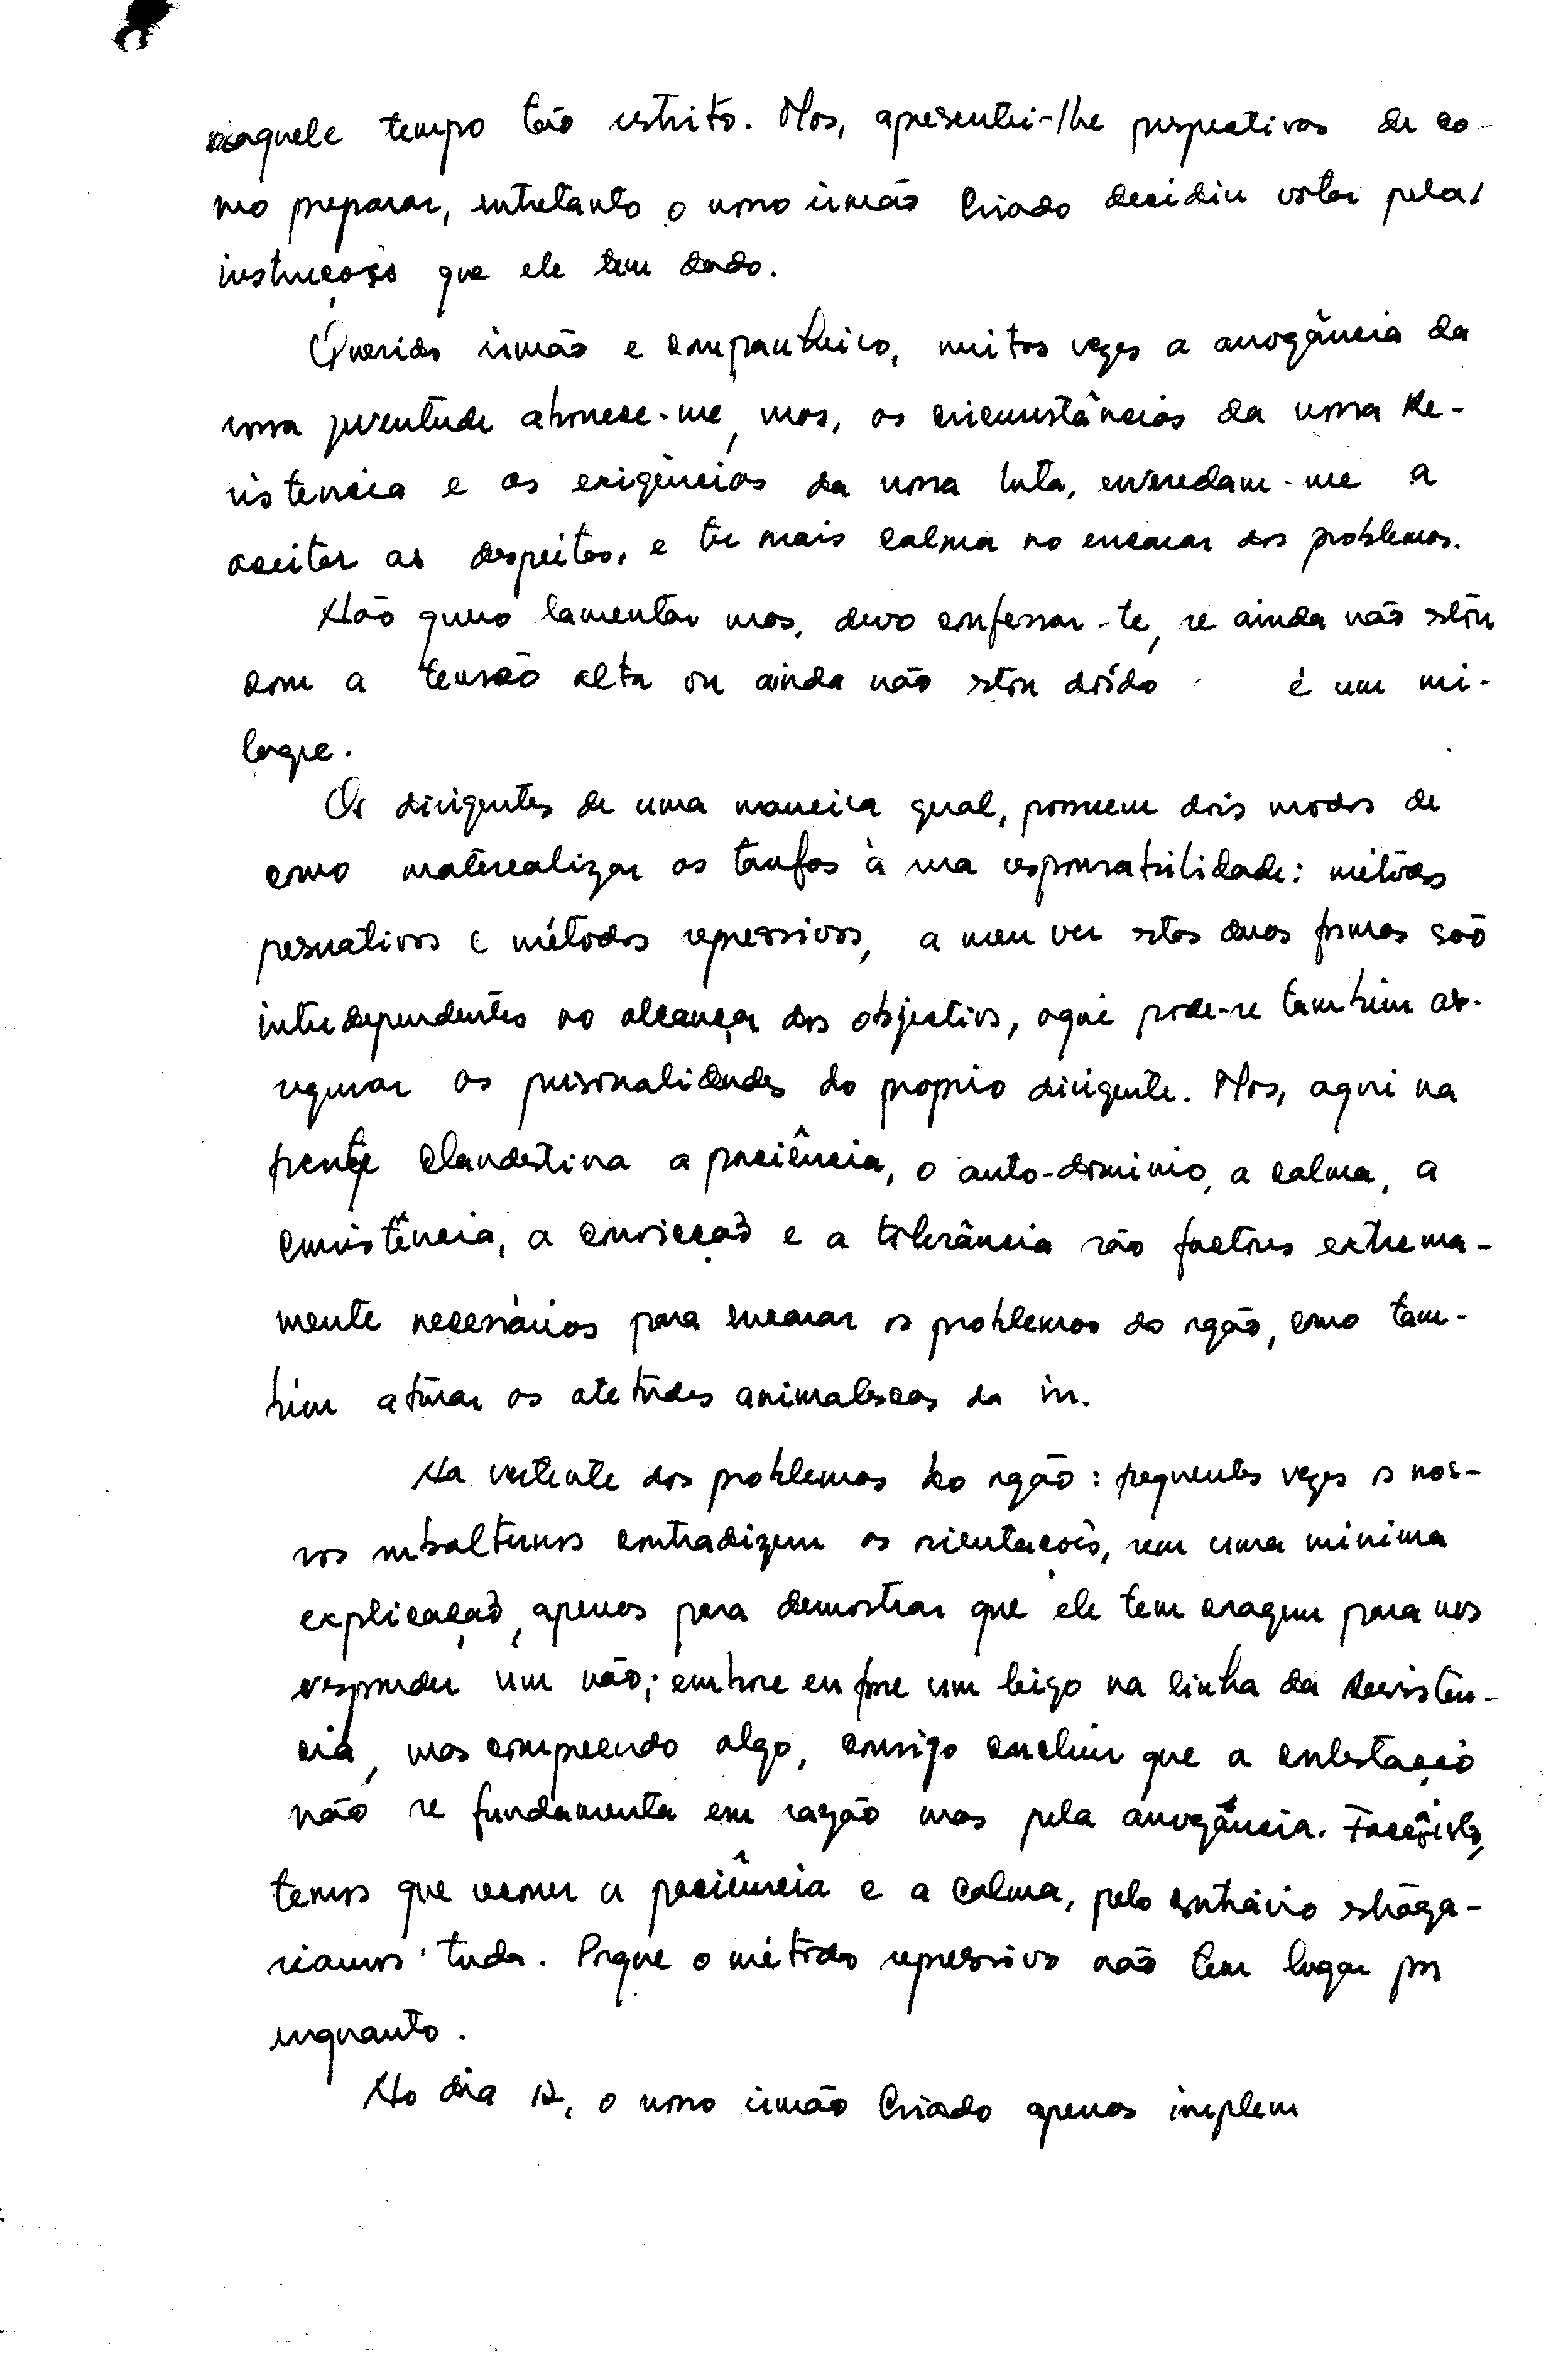 naquele tempo tão estrito. Mas, apresentei-lhe perspectivas de co-
mo preparar, entretanto o nosso irmão Criado decidiu votar pelas
instruções que ele tem dado.
Querido irmão e companheiro, muitas vezes a arrogância da
nossa juventude aborrece-me, mas, as circunstâncias da nossa Re-
sistencia e as exigências da nossa luta, enveredam-me a
aceitar as despeitas, e ter mais calma no encarar dos problemas.
Não quero lamentar mas, devo confessar-te, se ainda não estou
com a tensão alta ou ainda não estou doido é um mi-
lagre.
Os dirigentes de uma maneira geral, possuem dois modos de
como materealizar as tarefas à sua responsabilidade: métodos
persuativos e métodos repressivos, a meu ver estas duas formas são
interdependentes no alcançar dos objectivos, aqui pode-se também as-
segurar as personalidades do proprio dirigente. Mas, aqui na
frente clandestina a paciência, o auto-dominio, a calma, a
consistência, a convicção e a tolerância são factores extrema-
mente necessários para encarar os problemas do orgão, como tam-
bém aturar as atetudes animalescas do in.
Na vertente dos problemas do orgão: frequentes vezes os nos-
sos subalternos contradizem as orientações, sem uma minima
explicação, apenas para demostrar que ele tem coragem para nos
responder um não; embora eu fosse um leigo na linha da Resistên-
cia, mas compreendo algo, consigo concluir que a contestação
não se fundamenta em razão mas pela arrogância. Face à isto,
temos que vencer a paciência e a calma, pelo contrário estraga-
riamos tudo. Porque o método repressivo não tem lugar por
enquanto.
No dia 12, o nosso irmão Criado apenas implem